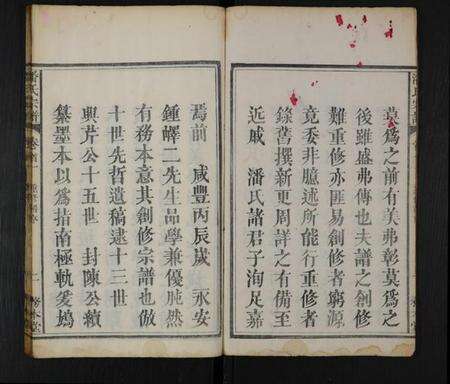 莫爲之前有美弗彰莫爲之
後雖盛弗傳也夫譜之創修
難重修亦匪易創修者窮源
竟委非臆述所能行重修者
錄舊撰新更周詳之有備至
近戚 潘氏諸君子洵足嘉
焉前 咸豐丙辰歲 永安
鍾嶧二先生品學兼優肫然
有務本意其創修宗譜也倣
十世先哲遺稿逮十三世
興芹公十五世 封陳公續
纂墨本以爲指南極軌爰摀
潘氏宗譜 卷首
務本堂